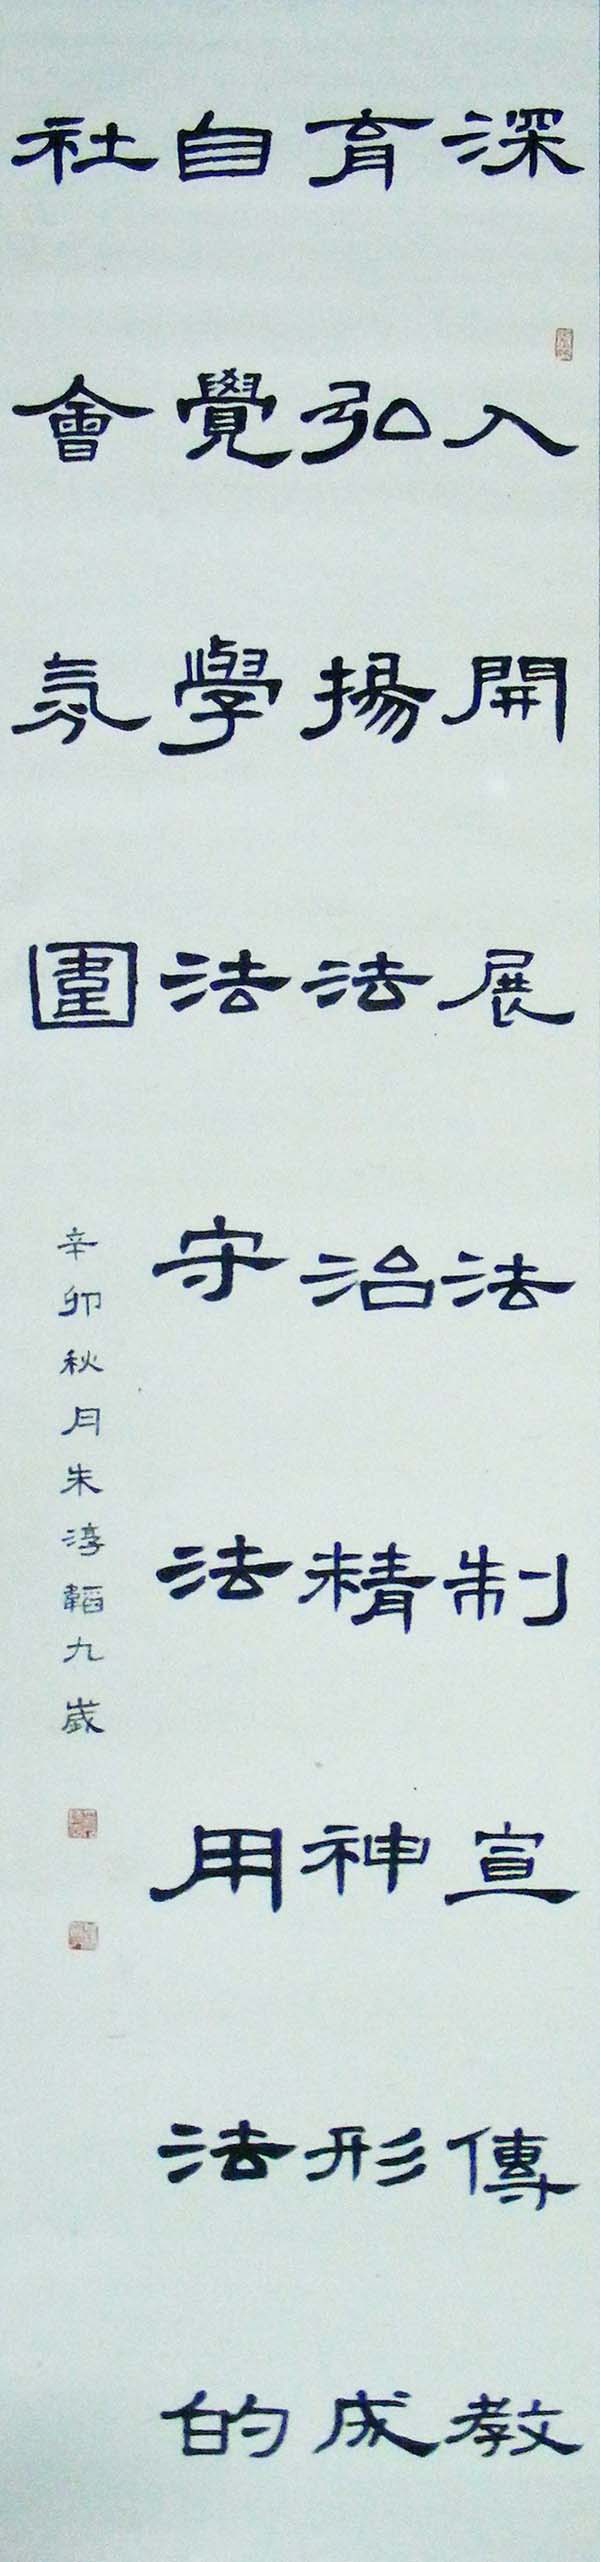 深入開展法制宣傳教
育弘揚法治精神形成
自覺學法守法用法的
社會氛圍
辛卯秋月朱淳韜九歲